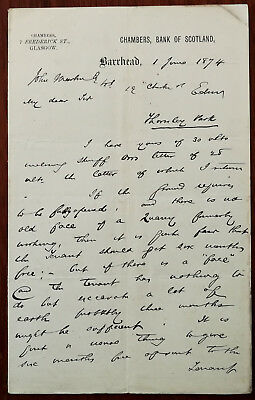 CHAMBERS,
7 FREDERICK ST.,
GLASGOW.
CHAMBERS, BANK OF SCOTLAND,
Barrhead, 1 June 1874
John
My dear Sir
Thornley Park
I have yours of 30 ulto
letter of 28
ulto the latter of which I return
If the ground requires
to be and there is no
old face of a Quarry formerly
working, then it is quite fair that
the tenant should get six months
free: – but if there is a "face"
and the tenant has nothing to
do but excavate a lot of
earth probably three months
might be sufficient. It is
just a usual thing to give
six months free of rent to the
Tenant